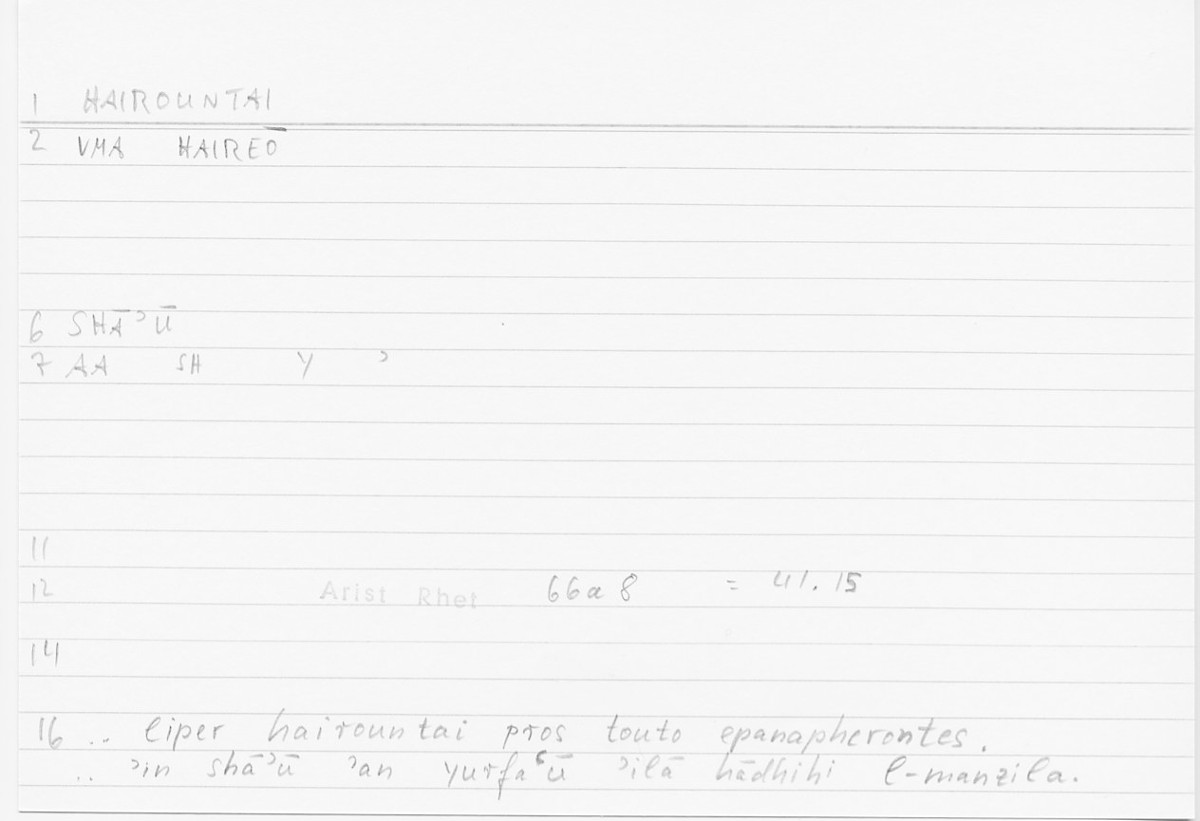 1 HAIROUNTAI
2 VMA HAIREŌ
6 SHĀʾŪ
7 AA SH Y ʾ
11
12 Arist Rhet 66a 8 = 41.15
14
16 .. eiper hairountai pros touto epanapherontes.
.. ʾin shāʾū ʾan yurfaʿū ʾilā hādhihi l-manzila.